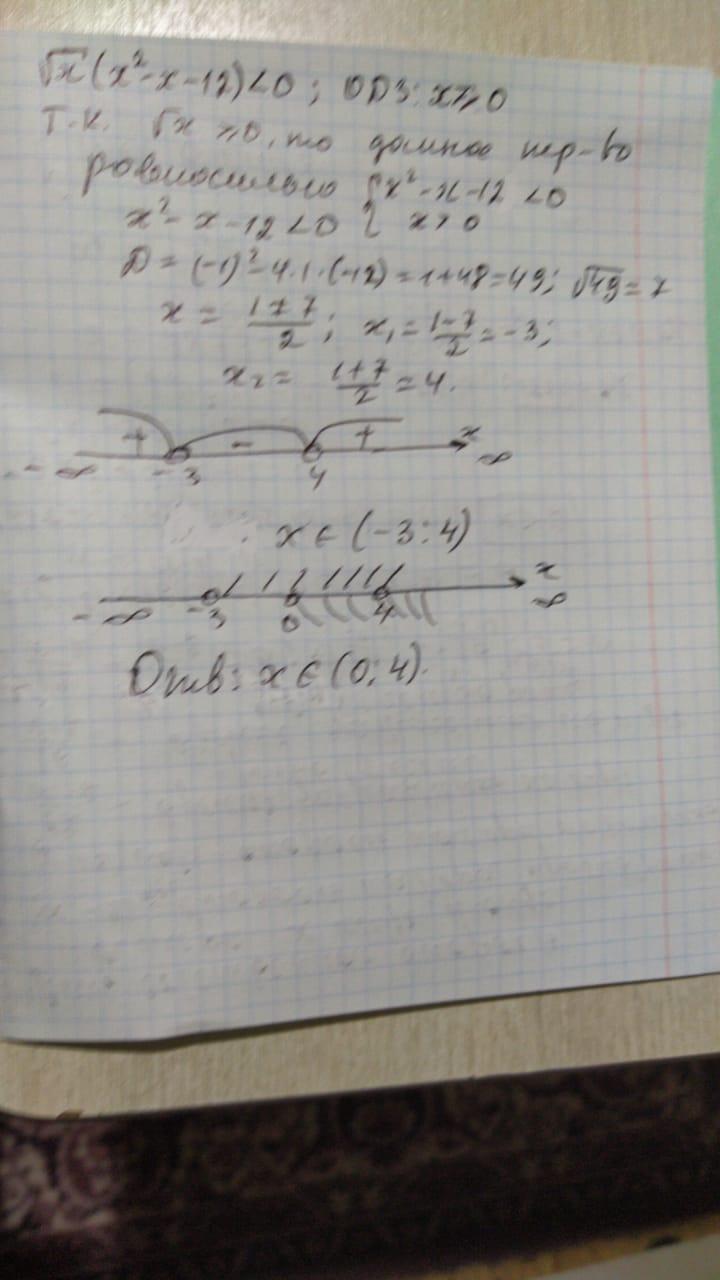 √x (x² - x - 12) < 0; ОДЗ: x ≥ 0
Т.к. √x ≥ 0, то данное нер-во
равносильно { x² - x - 12 < 0
x² - x - 12 < 0 { x > 0
D = (-1)² - 4·1·(-12) = 1 + 48 = 49; √49 = 7
x = (1 ± 7)/2; x₁ = (1-7)/2 = -3;
x₂ = (1+7)/2 = 4.
+ - + x
-∞ -3 4 ∞
x ∈ (-3; 4)
x
-∞ -3 0 4 ∞
Отв: x ∈ (0; 4).